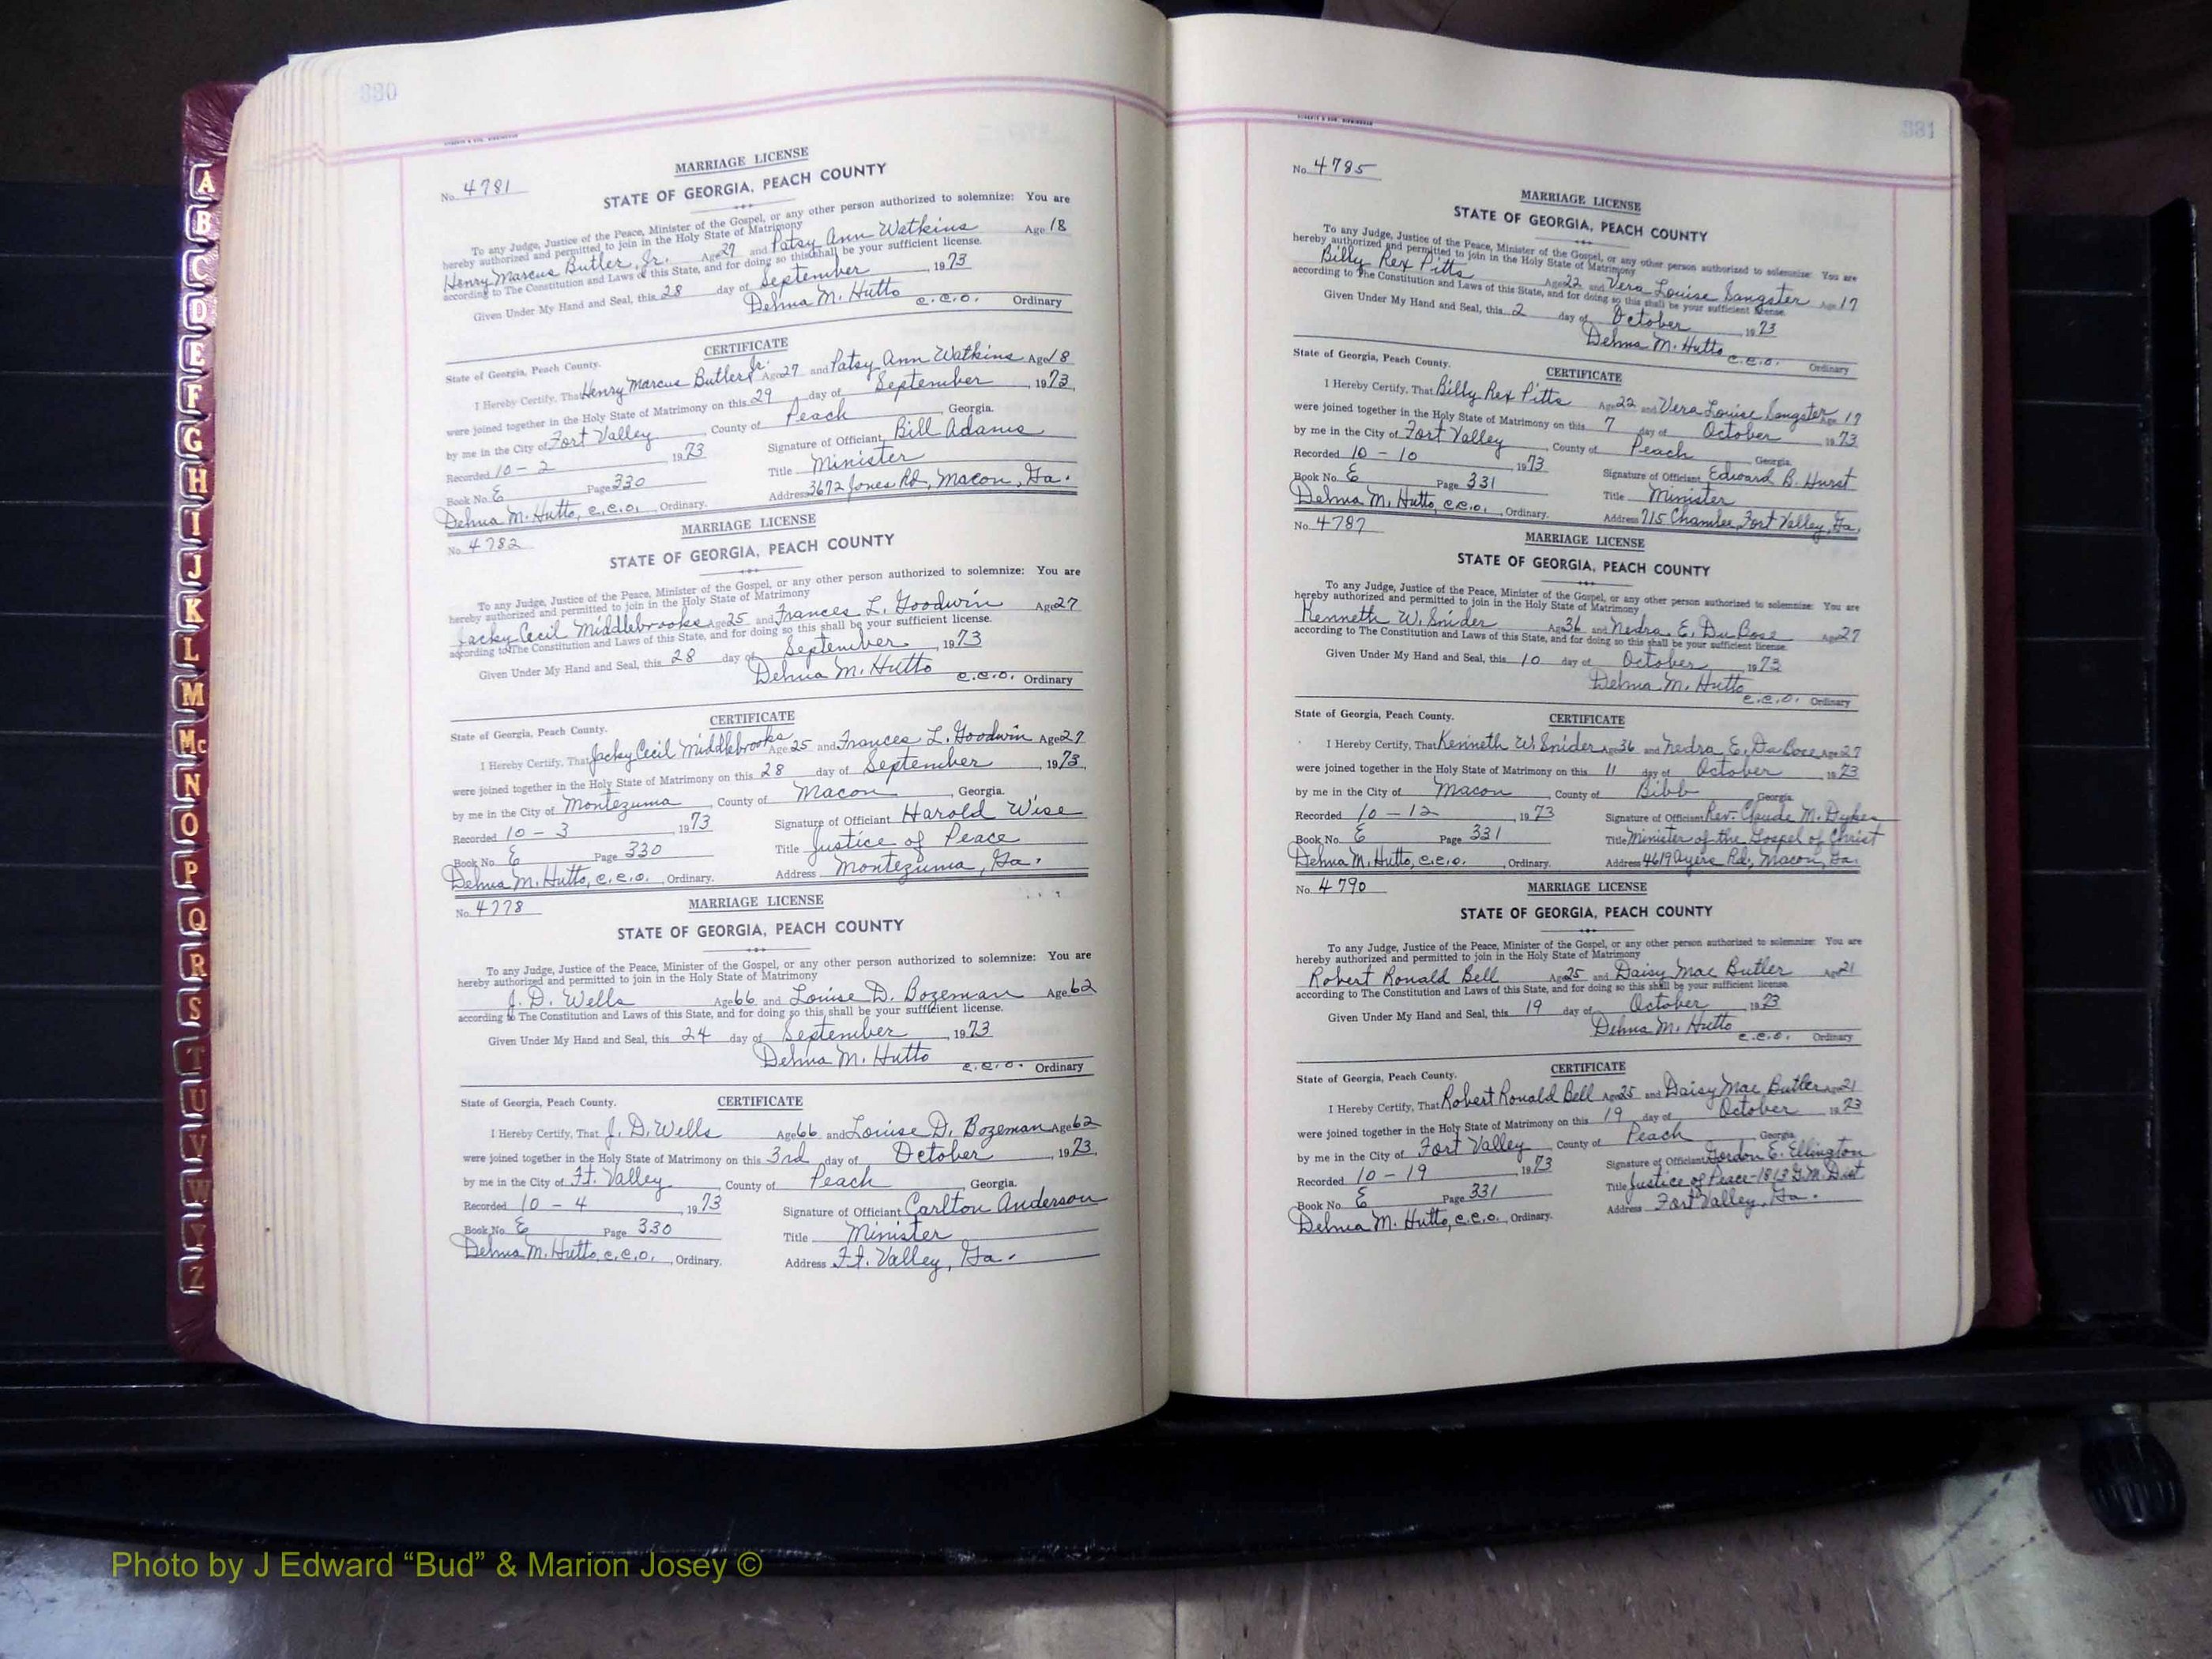 330
MARRIAGE LICENSE
No. 4781
STATE OF GEORGIA, PEACH COUNTY
To any Judge, Justice of the Peace, Minister of the Gospel, or any other person authorized to solemnize: You are
hereby authorized and permitted to join in the Holy State of Matrimony
Henry Marcus Butler, Jr. Age 27 and Patsy Ann Watkins Age 18
according to The Constitution and Laws of this State, and for doing so this shall be your sufficient license.
Given Under My Hand and Seal, this 28 day of September, 1973
Delma M. Hutto C.C.O. Ordinary
CERTIFICATE
State of Georgia, Peach County.
I Hereby Certify, That Henry Marcus Butler Jr. Age 27 and Patsy Ann Watkins Age 18
were joined together in the Holy State of Matrimony on this 29 day of September, 1973,
by me in the City of Fort Valley, County of Peach, Georgia.
Recorded 10-2, 1973 Signature of Officiant Bill Adams
Book No. E Page 330 Title Minister
Delma M. Hutto, C.C.O., Ordinary. Address 3672 Jones Rd, Macon, Ga.
MARRIAGE LICENSE
No. 4782
STATE OF GEORGIA, PEACH COUNTY
To any Judge, Justice of the Peace, Minister of the Gospel, or any other person authorized to solemnize: You are
hereby authorized and permitted to join in the Holy State of Matrimony
Jacky Cecil Middlebrooks Age 25 and Frances L. Goodwin Age 27
according to The Constitution and Laws of this State, and for doing so this shall be your sufficient license.
Given Under My Hand and Seal, this 28 day of September, 1973
Delma M. Hutto C.C.O. Ordinary
CERTIFICATE
State of Georgia, Peach County.
I Hereby Certify, That Jacky Cecil Middlebrooks Age 25 and Frances L. Goodwin Age 27
were joined together in the Holy State of Matrimony on this 28 day of September, 1973,
by me in the City of Montezuma, County of Macon, Georgia.
Recorded 10-3, 1973 Signature of Officiant Harold Wise
Book No. E Page 330 Title Justice of Peace
Delma M. Hutto, C.C.O., Ordinary. Address Montezuma, Ga.
MARRIAGE LICENSE
No. 4778
STATE OF GEORGIA, PEACH COUNTY
To any Judge, Justice of the Peace, Minister of the Gospel, or any other person authorized to solemnize: You are
hereby authorized and permitted to join in the Holy State of Matrimony
J. D. Wells Age 66 and Louise D. Bozeman Age 62
according to The Constitution and Laws of this State, and for doing so this shall be your sufficient license.
Given Under My Hand and Seal, this 24 day of September, 1973
Delma M. Hutto C.C.O. Ordinary
State of Georgia, Peach County. CERTIFICATE
I Hereby Certify, That J. D. Wells Age 66 and Louise D. Bozeman Age 62
were joined together in the Holy State of Matrimony on this 3rd day of October, 1973,
by me in the City of Ft. Valley, County of Peach, Georgia.
Recorded 10-4, 1973 Signature of Officiant Carlton Anderson
Book No. E Page 330 Title Minister
Delma M. Hutto, C.C.O., Ordinary. Address Ft. Valley, Ga.
331
No. 4785
MARRIAGE LICENSE
STATE OF GEORGIA, PEACH COUNTY
To any Judge, Justice of the Peace, Minister of the Gospel, or any other person authorized to solemnize: You are
hereby authorized and permitted to join in the Holy State of Matrimony
Billy Rex Pitts Age 22 and Vera Louise Sangster Age 17
according to The Constitution and Laws of this State, and for doing so this shall be your sufficient license.
Given Under My Hand and Seal, this 2 day of October, 1973
Delma M. Hutto C.C.O. Ordinary
State of Georgia, Peach County. CERTIFICATE
I Hereby Certify, That Billy Rex Pitts Age 22 and Vera Louise Sangster Age 17
were joined together in the Holy State of Matrimony on this 7 day of October 1973
by me in the City of Fort Valley, County of Peach, Georgia
Recorded 10-10, 1973 Signature of Officiant Edward B. Hurst
Book No. E Page 331 Title Minister
Delma M. Hutto, C.C.O., Ordinary. Address 715 Chamlee, Fort Valley, Ga.
No. 4787
MARRIAGE LICENSE
STATE OF GEORGIA, PEACH COUNTY
To any Judge, Justice of the Peace, Minister of the Gospel, or any other person authorized to solemnize: You are
hereby authorized and permitted to join in the Holy State of Matrimony
Kenneth W. Snider Age 36 and Nedra E. DuBose Age 27
according to The Constitution and Laws of this State, and for doing so this shall be your sufficient license.
Given Under My Hand and Seal, this 10 day of October, 1973
Delma M. Hutto C.C.O. Ordinary
State of Georgia, Peach County. CERTIFICATE
I Hereby Certify, That Kenneth W. Snider Age 36 and Nedra E. DuBose Age 27
were joined together in the Holy State of Matrimony on this 11 day of October 1973
by me in the City of Macon, County of Bibb, Georgia
Recorded 10-12, 1973 Signature of Officiant Rev. Claude M. Dykes
Book No. E Page 331 Title Minister of the Gospel of Christ
Delma M. Hutto, C.C.O., Ordinary. Address 4619 Ayers Rd., Macon, Ga.
No. 4790
MARRIAGE LICENSE
STATE OF GEORGIA, PEACH COUNTY
To any Judge, Justice of the Peace, Minister of the Gospel, or any other person authorized to solemnize: You are
hereby authorized and permitted to join in the Holy State of Matrimony
Robert Ronald Bell Age 25 and Daisy Mae Butler Age 21
according to The Constitution and Laws of this State, and for doing so this shall be your sufficient license.
Given Under My Hand and Seal, this 19 day of October, 1973
Delma M. Hutto C.C.O. Ordinary
State of Georgia, Peach County. CERTIFICATE
I Hereby Certify, That Robert Ronald Bell Age 25 and Daisy Mae Butler Age 21
were joined together in the Holy State of Matrimony on this 19 day of October 1973
by me in the City of Fort Valley, County of Peach, Georgia
Recorded 10-19, 1973 Signature of Officiant Gordon E. Ellington
Book No. E Page 331 Title Justice of Peace-1813 G.M. Dist
Delma M. Hutto, C.C.O., Ordinary. Address Fort Valley, Ga.
A
B
C
D
E
F
G
H
I
J
K
L
M
Mc
N
O
P
Q
R
S
T
U
V
W
Y
Z
Photo by J Edward “Bud” & Marion Josey ©